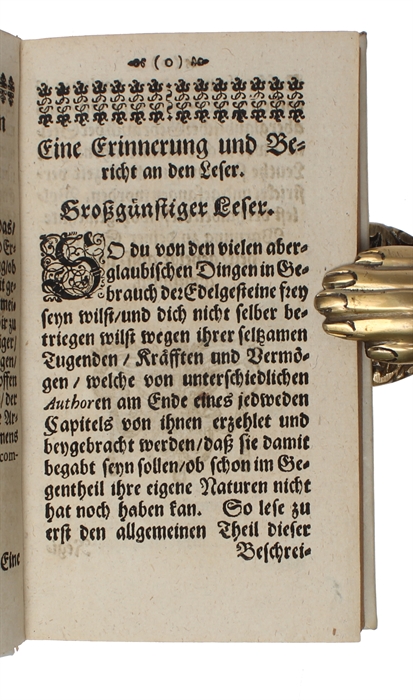 (0)
Eine Erinnerung und Be-
richt an den Leser.
Großgünstiger Leser.
SO du von den vielen aber-
glaubischen Dingen in Ge-
brauch der Edelgesteine frey
seyn wilst/und dich nicht selber be-
triegen wilst wegen ihrer seltzamen
Tugenden / Kräfften und Vermö-
gen / welche von unterschiedlichen
Authoren am Ende eines jedweden
Capitels von ihnen erzehlet und
beygebracht werden/daß sie damit
begabt seyn sollen/ob schon im Ge-
gentheil ihre eigene Naturen nicht
hat noch haben kan. So lese zu
erst den allgemeinen Theil dieser
Beschrei-
Eine